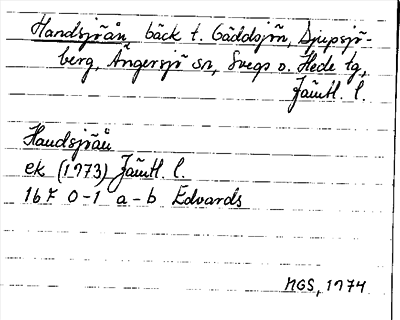 Handsjöån, bäck t. Gäddsjön, Djupsjö-
berg, Ängersjö sn, Svegs o. Hede tg,
Jämtl. l.
Handsjöån
ek (1973) Jämtl. l.
16 F 0-1 a-b Edvards
MGS, 1974